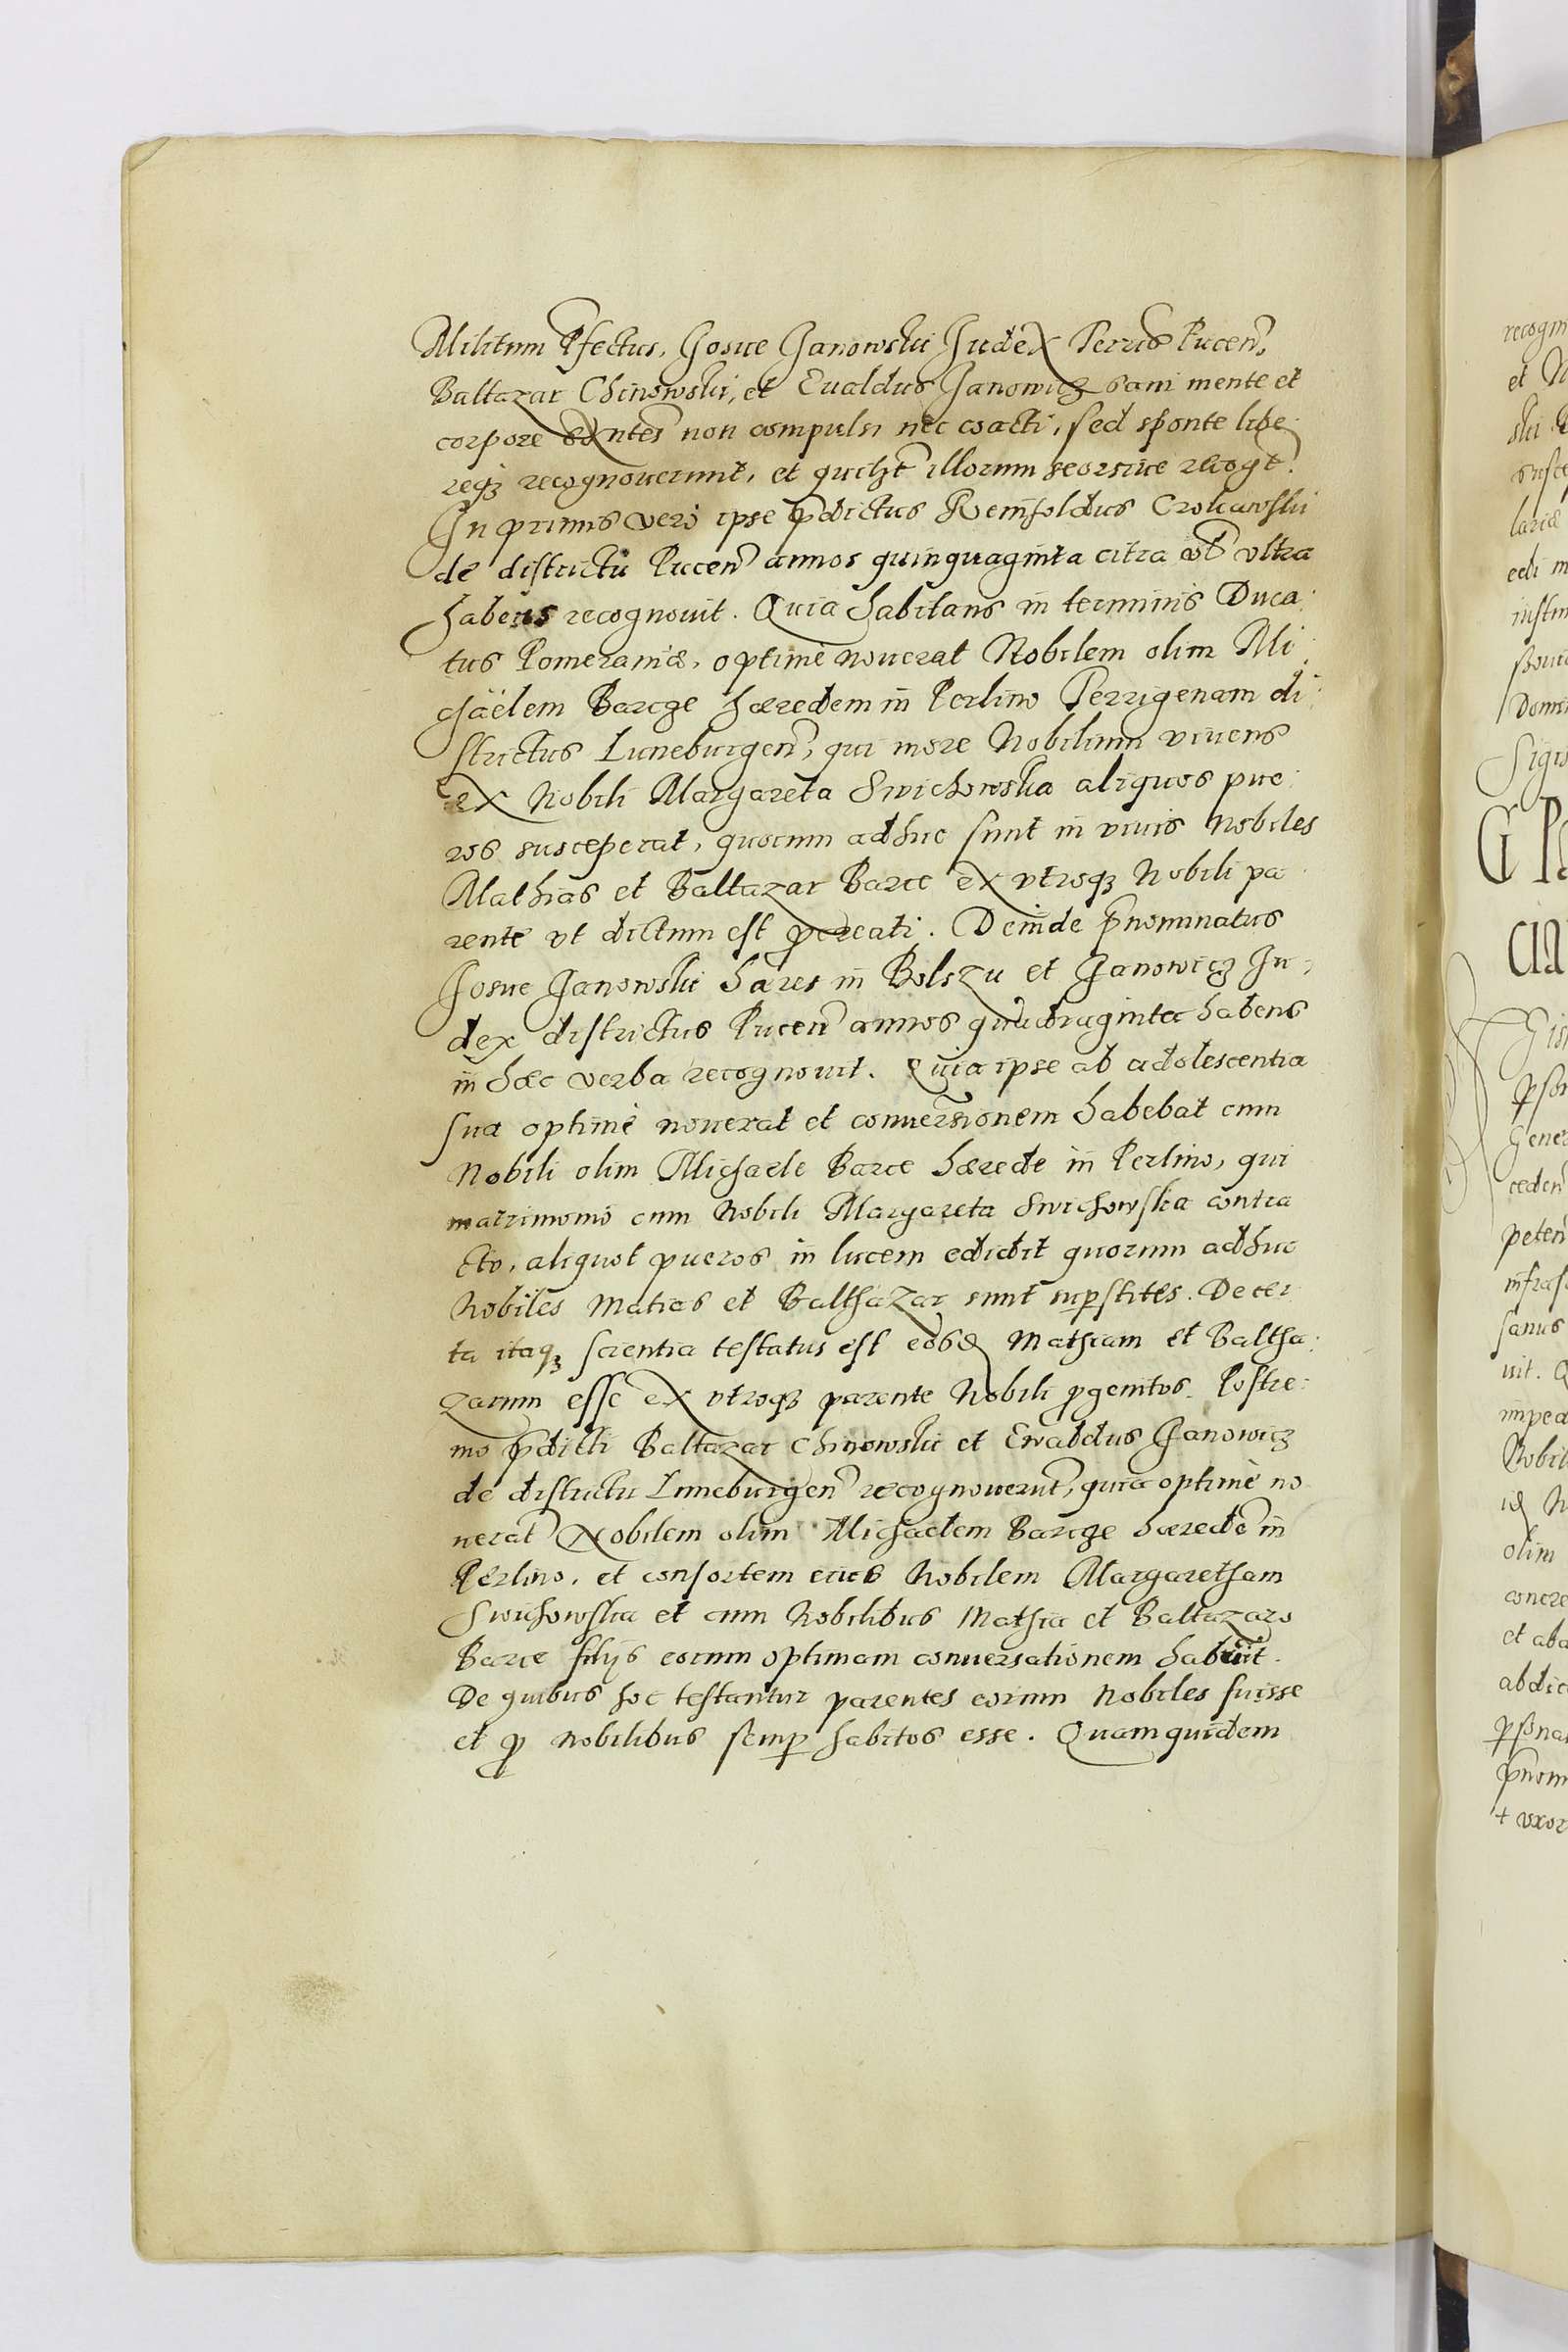 Militum Pfectus, Josue Janowski Judex Terris Pucen̄,
Baltazar Chinowski, et Eualdus Janowicz sani mente et
corpore exn̄tes non compulsi nec coacti, sed sponte libe:
reqꝫ recognouerunt, et quilꝫt illorum seorsiue recogt.
In primis vero ipse p̄dictus Reinholdus Crokawski
de districtu Pucen̄ annos quinquaginta citra vel vltra
habens recognouit. Quia habitans in terminis Duca:
tus Pomeraniæ, optimè nouerat Nobilem olim Mi:
chäelem Barcze hæredem in Perlino Terrigenam di:
strictus Luneburgen̄, qui more Nobilium viuens
ex Nobili Margareta Swichowska aliquos pue:
ros susceperat, quorum adhuc sunt in viuis Nobiles
Mathias et Baltazar Barce ex vtroqꝫ Nobili pa
rente vt dictum est ꝓcreati. Deinde p̄nominatus
Josue Janowski hæres in Bolszu et Janowicz Ju:
dex districtus Pucen̄ annos quadraginta habens
in hæc verba recognouit. Quia ipse ab adolescentia
sua optimè nouerat et conuersionem habebat cum
Nobili olim Michaele Barce hærede in Perlino, qui
matrimonio cum Nobili Margareta Swichowska contra
cto, aliquot pueros in lucem edidit quorum adhuc
Nobiles Matias et Balthazar sunt suꝑstites. De cer
ta itaqꝫ scientia testatus est eosd Mathiam et Baltha:
zarum esse ex vtroqꝫ parente Nobili ꝓgenitos. Postre:
mo p̄dicti Baltazar Chinowski et Ewaldus Janowicz
de districtu Luneburgen̄ recognouerūt, quia optimè no
uerāt Nobilem olim Michaelem Barcze hæredē in
Perlino, et consortem eius Nobilem Margaretham
Swichowska et cum Nobilibus Mathia et Baltazaro
Barce filijs eorum optimam conuersationem habuit.
De quibus hoc testantur parentes eorum Nobiles fuisse
et ꝓ nobilibus semꝑ habitos esse. Quam quidem